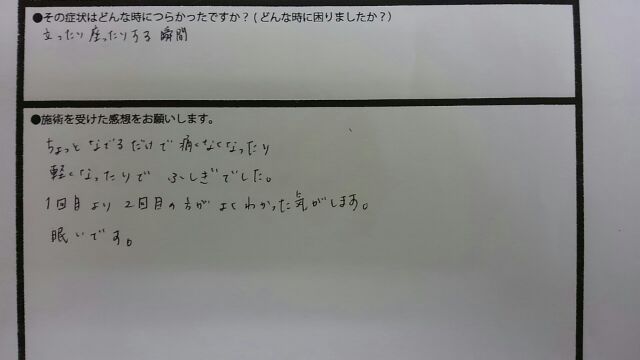 ●その症状はどんな時につらかったですか？(どんな時に困りましたか？)
立ったり座ったりする瞬間
●施術を受けた感想をお願いします。
ちょっとなでるだけで痛くなくなったり
軽くなったりでふしぎでした。
1回目より2回目の方がよくわかった気がします。
眠いです。